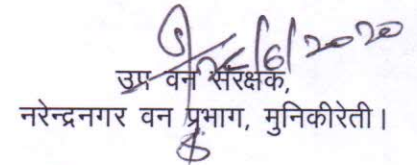 26/6/2020
उप वन संरक्षक,
नरेन्द्रनगर वन प्रभाग, मुनिकीरेती।